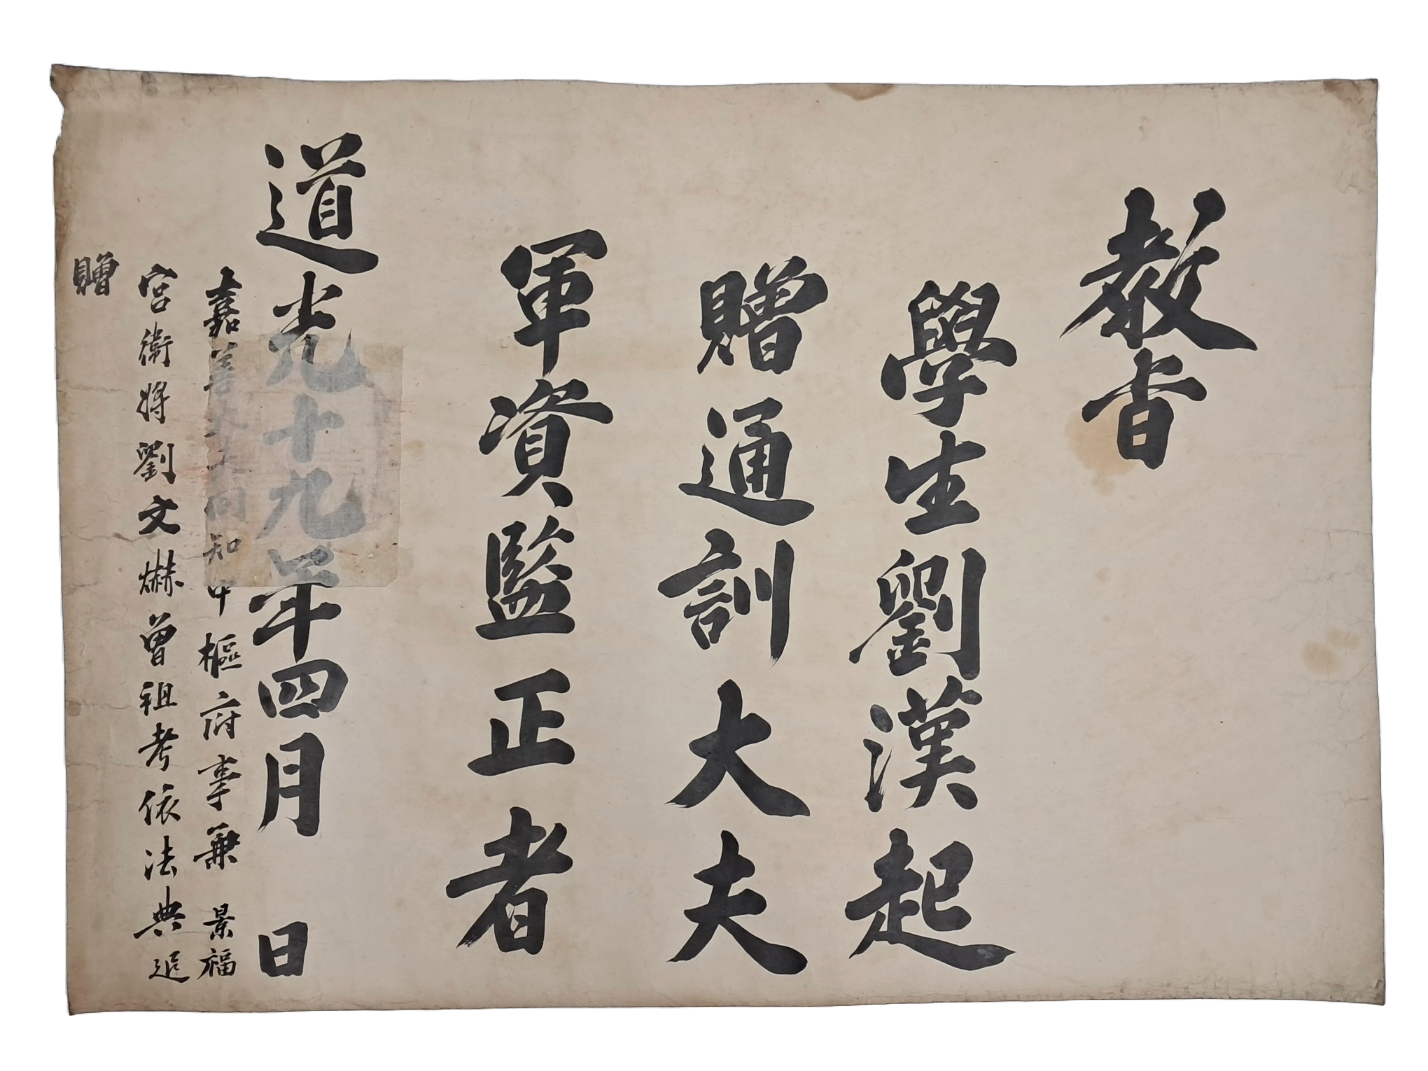 教旨
學生劉漢起
贈通訓大夫
軍資監正者
道光十九年四月 日
嘉善大夫同知中樞府事兼 景福
宮衛將劉文爀曾祖考依法典追
贈